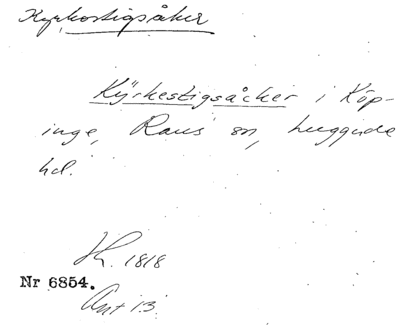 Kyrkostigsåker
Kÿrkestigsåcker i Köp-
inge, Raus sn, Luggude
hd.
H. 1818
Nr 6854.
Ant 13.